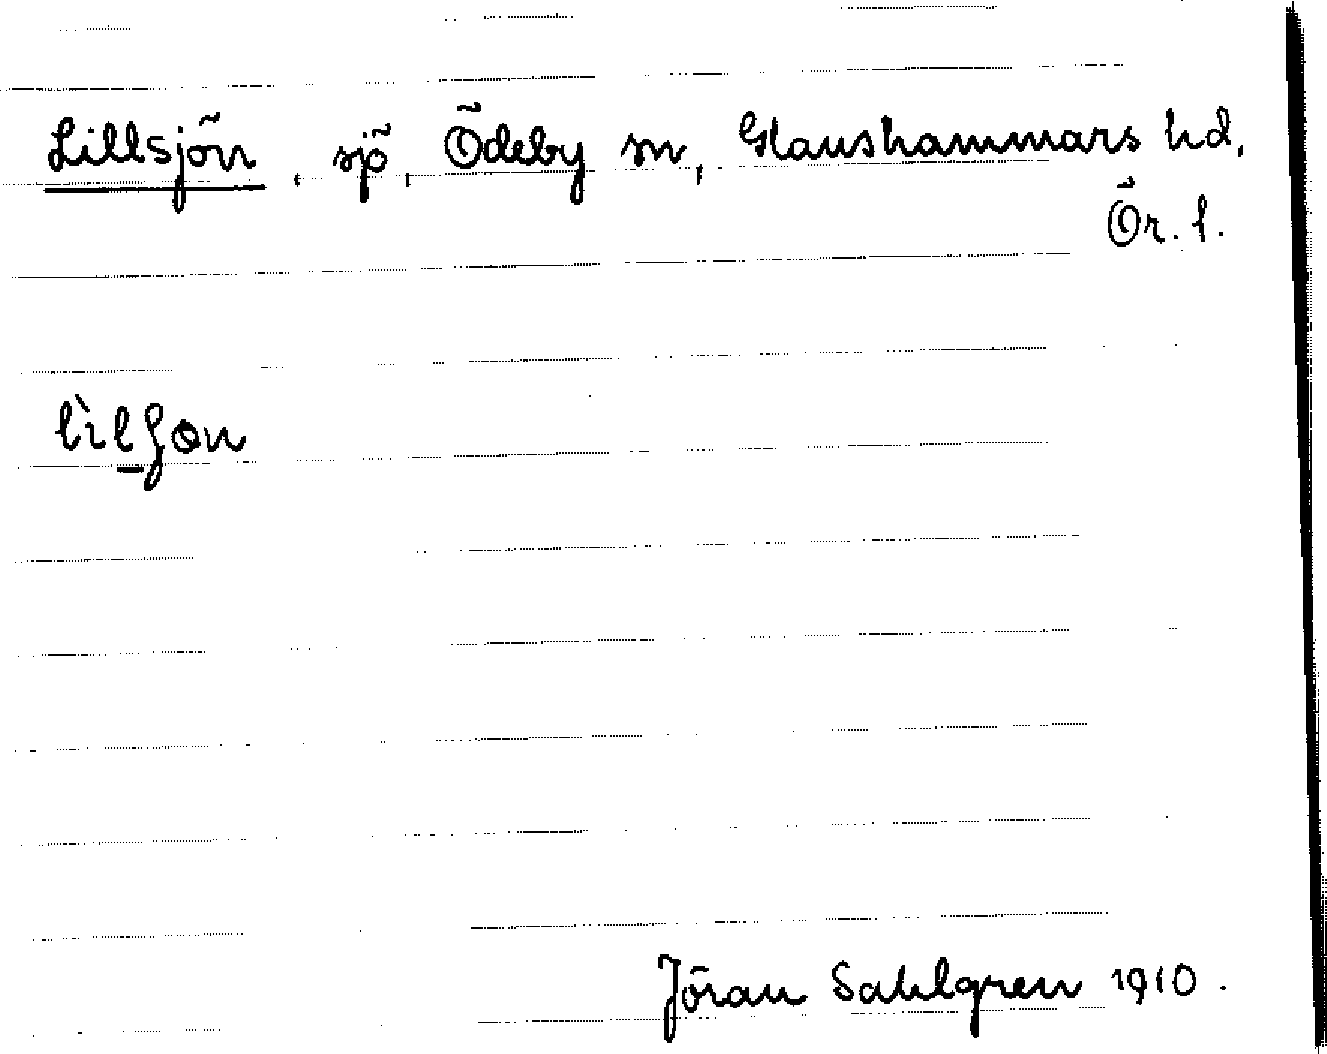 Lillsjön, sjö, Ödeby sn, Glanshammars hd,
Ör. l.
Jöran Sahlgren 1910.